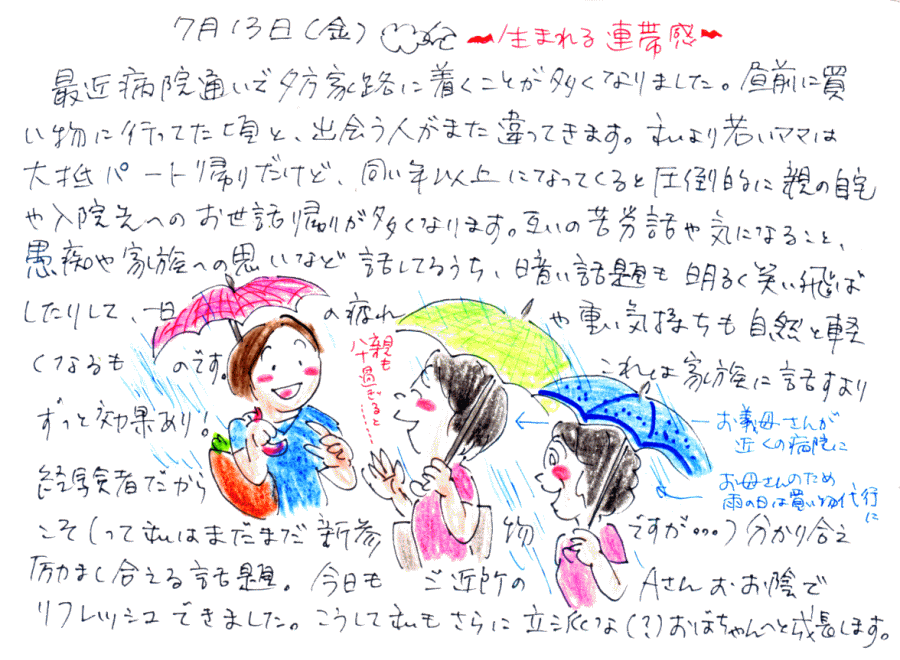 7月13日(金)
～生まれる連帯感～
最近病院通いで夕方家路に着くことが多くなりました。昼前に買
い物に行ってた頃と、出会う人がまた違ってきます。私より若いママは
大抵パート帰りだけど、同い年以上になってくると圧倒的に親の自宅
や入院先へのお世話帰りが多くなります。互いの苦労話や気になること、
愚痴や家族への思いなど話してるうち、暗い話題も明るく笑い飛ば
したりして、一日の疲れや重い気持ちも自然と軽
くなるものです。これは家族に話すより
ずっと効果あり!
経験者だから
こそ(って私はまだまだ新参物ですが…)分かり合え
励まし合える話題。今日もご近所のAさんおお陰で
リフレッシュできました。こうして私もさらに立派な(?)おばちゃんへと成長します。
親も
八十過ぎると
……
お義母さんが
近くの病院に
お母さんのため
雨の日は買い物代行
に